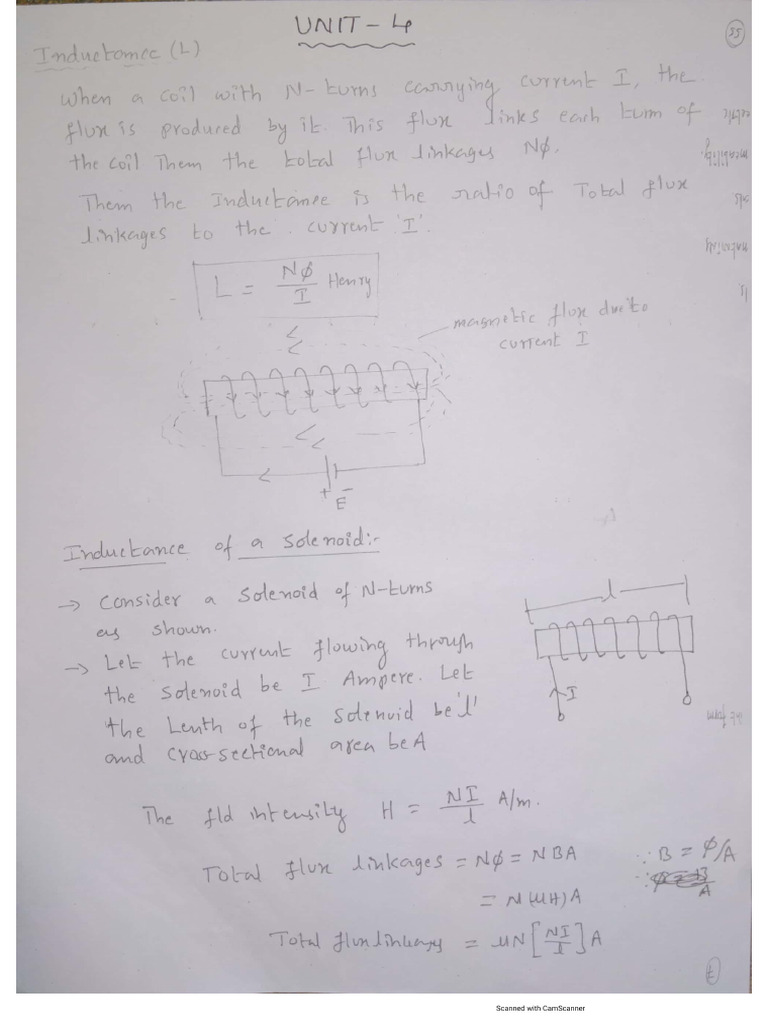 UNIT-4
35
Inductance (L)
When a coil with N-turns carrying current I, the
flux is produced by it. This flux links each turn of
the coil Them the total flux linkages Nφ.
Them the Inductance is the ratio of Total flux
linkages to the current 'I'.
L = Nφ/I Henry
magnetic flux due to
current I
+ -
E
Inductance of a solenoid:-
→ Consider a solenoid of N-turns
as shown.
→ Let the current flowing through
the solenoid be I Ampere. Let
the Lenth of the solenoid be 'l'
and cross-sectional area be A
l
I
The fld intensity H = NI/l A/m.
Total flux linkages = Nφ = NBA
∵ B = φ/A
= N(μH)A
Total flux linkages = μN[NI/l]A